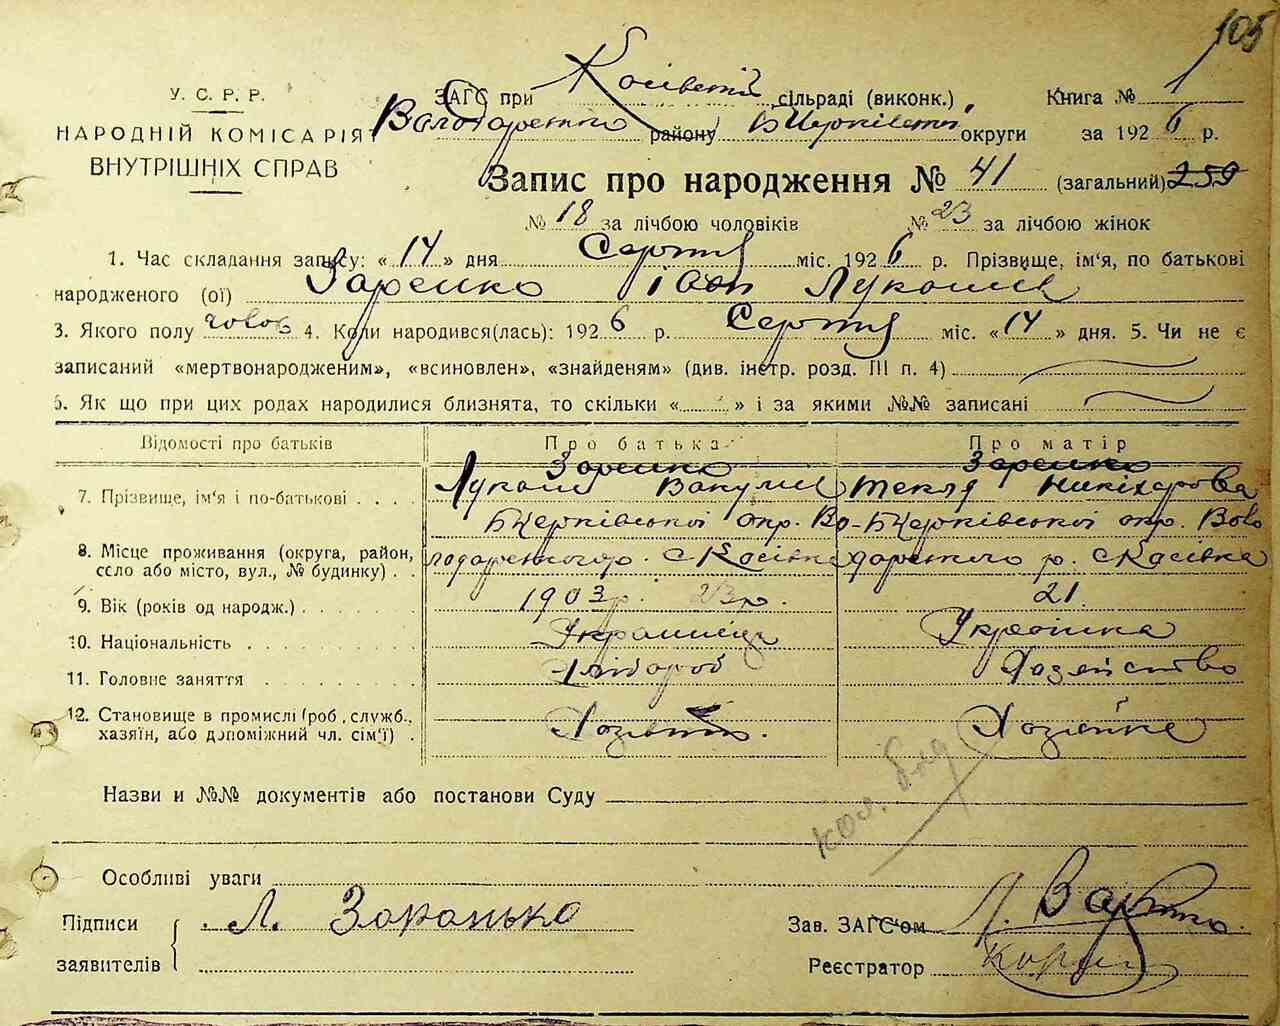 105
У. С. Р. Р.
НАРОДНІЙ КОМІСАРІЯТ
ВНУТРІШНІХ СПРАВ
ЗАГС при Косівській сільраді (виконк.) Книга № 1
Володарського району БЦерківської округи за 1926 р.
Запис про народження № 41 (загальний) 259
№ 18 за лічбою чоловіків № 23 за лічбою жінок
1. Час складання запису: «14» дня Серпня міс. 1926 р. Прізвище, ім'я, по батькові
народженого (ої) Заренко Іван Лукашів
3. Якого полу чолов 4. Коли народився(лась): 1926 р. Серпня міс. «14» дня. 5. Чи не є
записаний «мертвонародженим», «всиновлен», «знайденям» (див. інстр. розд. III п. 4)
6. Як що при цих родах народилися близнята, то скільки « » і за якими №№ записані
Відомості про батьків Про батька Про матір
Заренко Заренко
7. Прізвище, ім'я і по-батькові . . . . Лукаш Вакумів Текля Никіхорова
БЦерківської окр. Во- БЦерківської окр. Воло
8. Місце проживання (округа, район, село або місто, вул., № будинку) . . лодарського р. с Косівка дарського р. с Косівка
9. Вік (років од народж.) . . . . 1903 р. 23 р. 21.
10. Національність . . . . Українець Українка
11. Головне заняття . . . . Хлібороб Хазяйство
12. Становище в промислі (роб., служб., хазяїн, або допоміжний чл. сім'ї) . Хазяїн. Хазяйка
кол. бяд
Назви и №№ документів або постанови Суду
Особливі уваги
Підписи заявителів Л. Заранько
Зав. ЗАГС'ом
Реєстратор